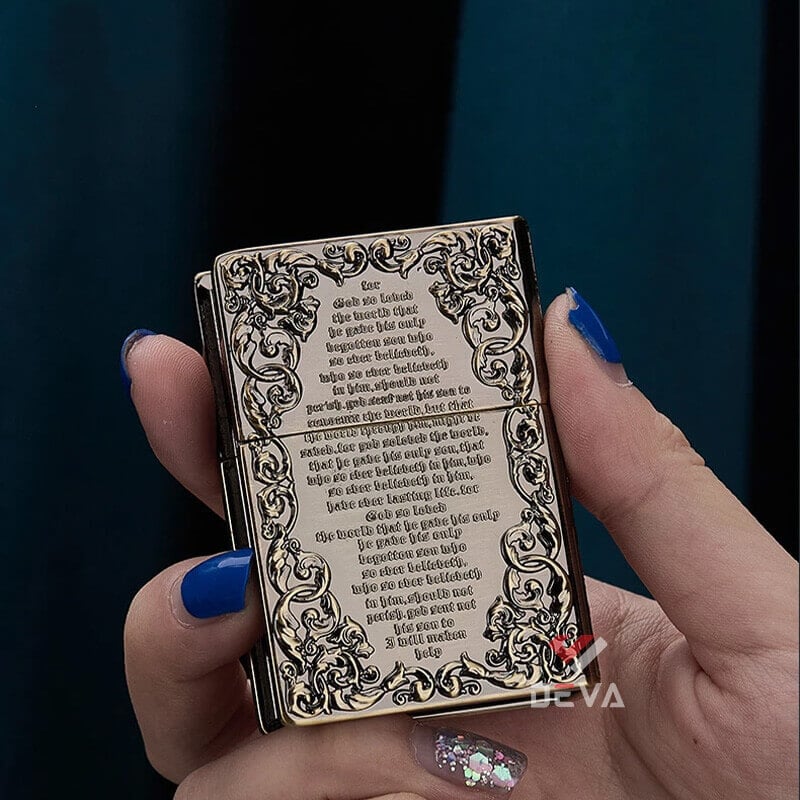 for
God so loved
the world that
he gave his only
begotten son who
so ever believeth,
who so ever believeth
in him,should not
perish.god sent not his son to
condemn the world,but that
the world through him,might be
saved.for god soloved the world,
that he gave his only son,that
who so ever believeth in him,who
so ever believeth in him,
have ever lasting life.for
God so loved
the world that he gave his only
he gave his only
begotten son who
so ever believeth,
who so ever believeth
in him,should not
perish.god sent not
his son to
I will maken
help
DEVA